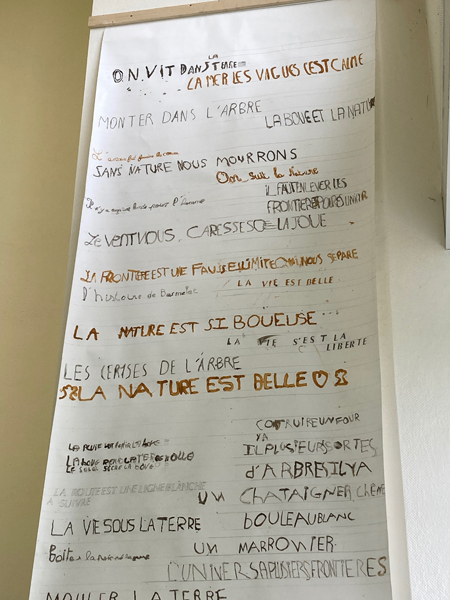 LA
ON VIT DANS TERRE
LA MER LES VAGUES C'EST CALME
MONTER DANS L'ARBRE
LA BOUE ET LA NATU
SANS NATURE NOUS MOURRONS
On suit la
IL FAUT ENLEVER LES
FRONTIERE POUR S UNIR
LE VENT VOUS CARESSE SOE LA JOUE
LA FRONTIERE EST UNE FAUSSE LIMITE QUI NOUS SEPARE
D'histoire de
LA VIE EST BELLE
LA NATURE EST SI BOUEUSE...
LA VIE S'EST LA
LIBERTE
LES CERISES DE L'ARBRE
LA NATURE EST BELLE♡
CONTRUIRE UN FOUR
YA
IL PLUSIEURS SORTES
LA BOUE REND LA TERE MOLLE
LE SOLEIL SECHE LA BOUE
d'ARBRES IL YA
LA ROUTE EST UNE LIGNE BLANCHE
A SUIVRE
UN CHATAIGNER, CHENE
LA VIE SOUS LA TERRE
BOULEAU BLANC
UN MARRONIER
L'UNIVERS A PLUSIERS FRONTIERES
MOULER LA TERRE